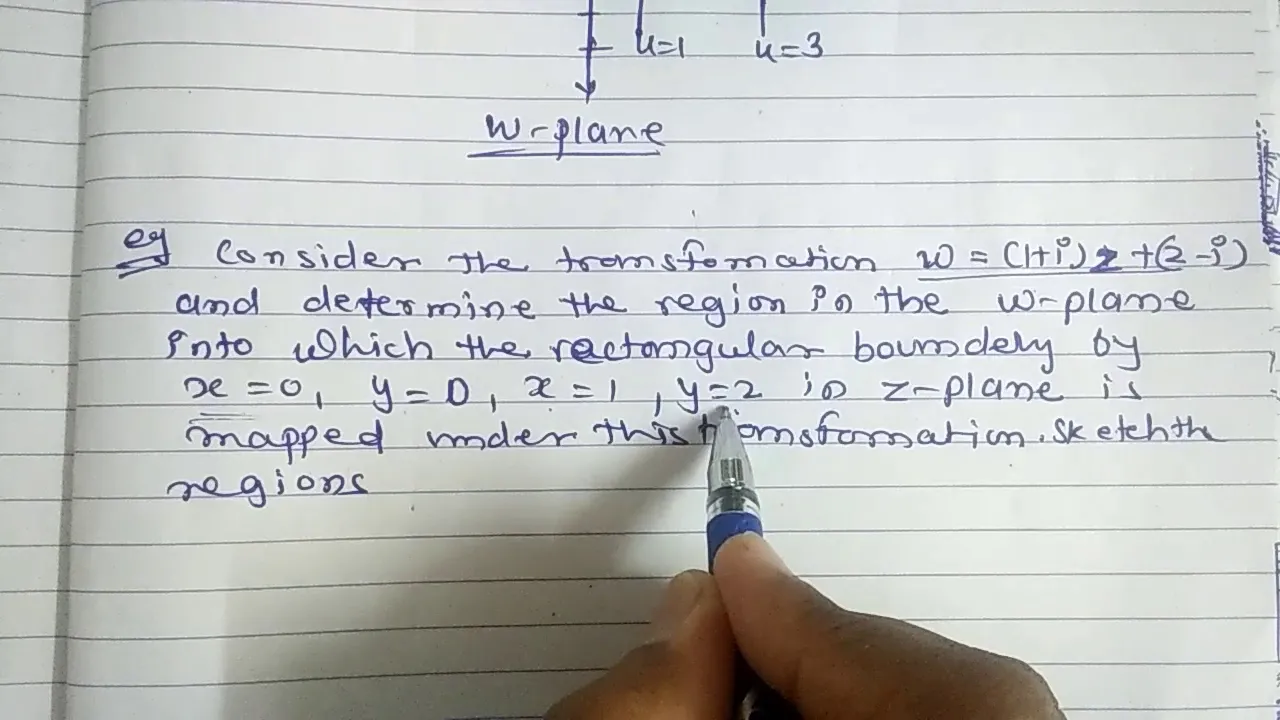 u=1 u=3
w-plane
eg Consider the transfomation w = (1+i)z +(2-i)
and determine the region in the w-plane
into which the rectangular boundely by
x=0, y=0, x=1, y=2 in z-plane is
mapped under this transformation. Sketch the
regions